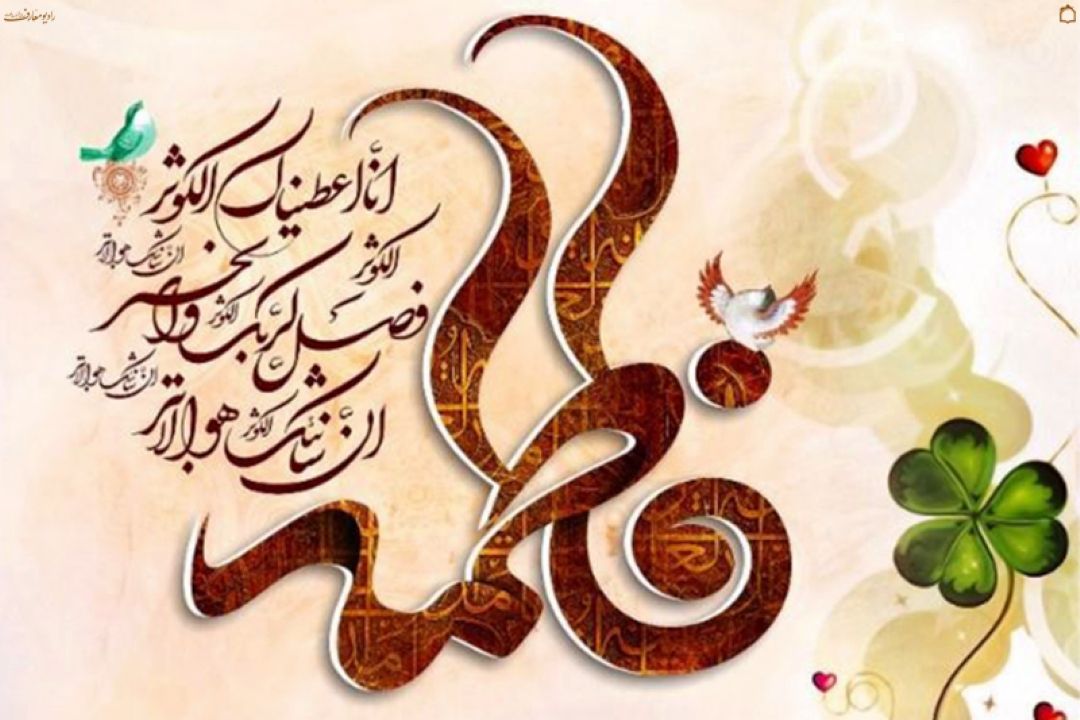 رادیو معارف
انّا اعطیناک الکوثر
الکوثر
ان شانئک هو الابتر
فصل لربک وانحر
الکوثر
ان شانئک هو الابتر
انّ شانئک هو الابتر
الکوثر
فاطمه